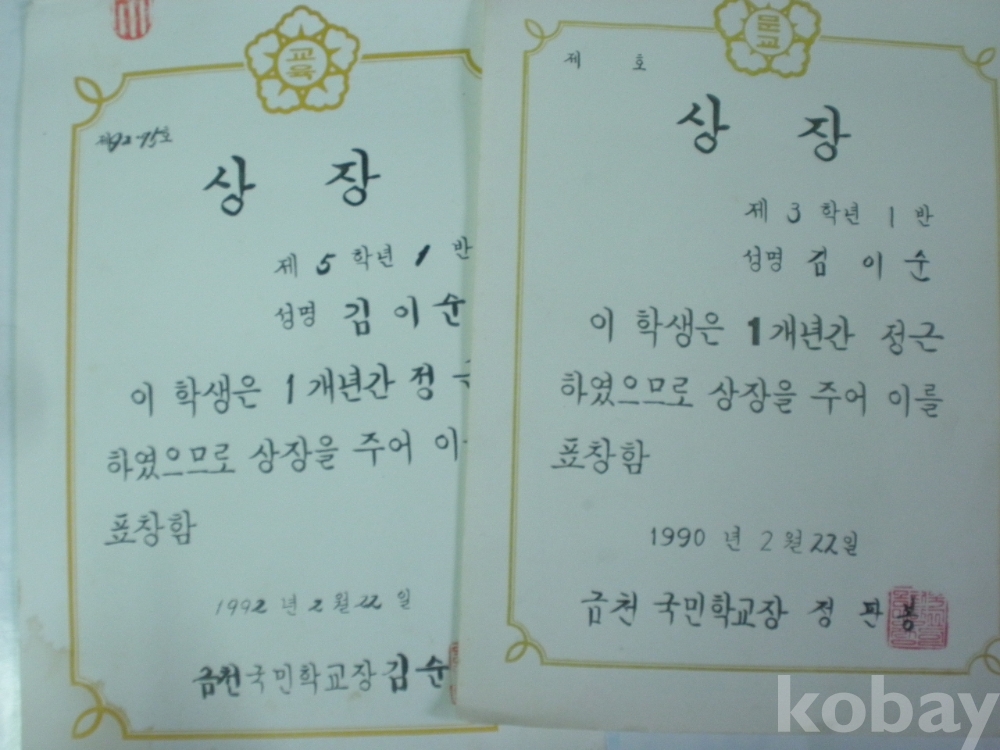 교육
제92-75호
상 장
제 5 학년 1 반
성명 김 이 순
이 학생은 1 개년간 정
하였으므로 상장을 주어 이
표창함
1992 년 2 월 22 일
금천국민학교장 김 순
문교
제 호
상 장
제 3 학년 1 반
성명 김 이 순
이 학생은 1개년간 정근
하였으므로 상장을 주어 이를
표창함
1990 년 2 월 22 일
금천 국민학교장 정 판 봉
kobay